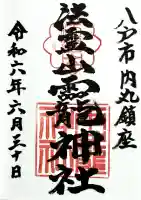 八戸市内丸鎮座
法霊山龗神社
令和六年六月三十日